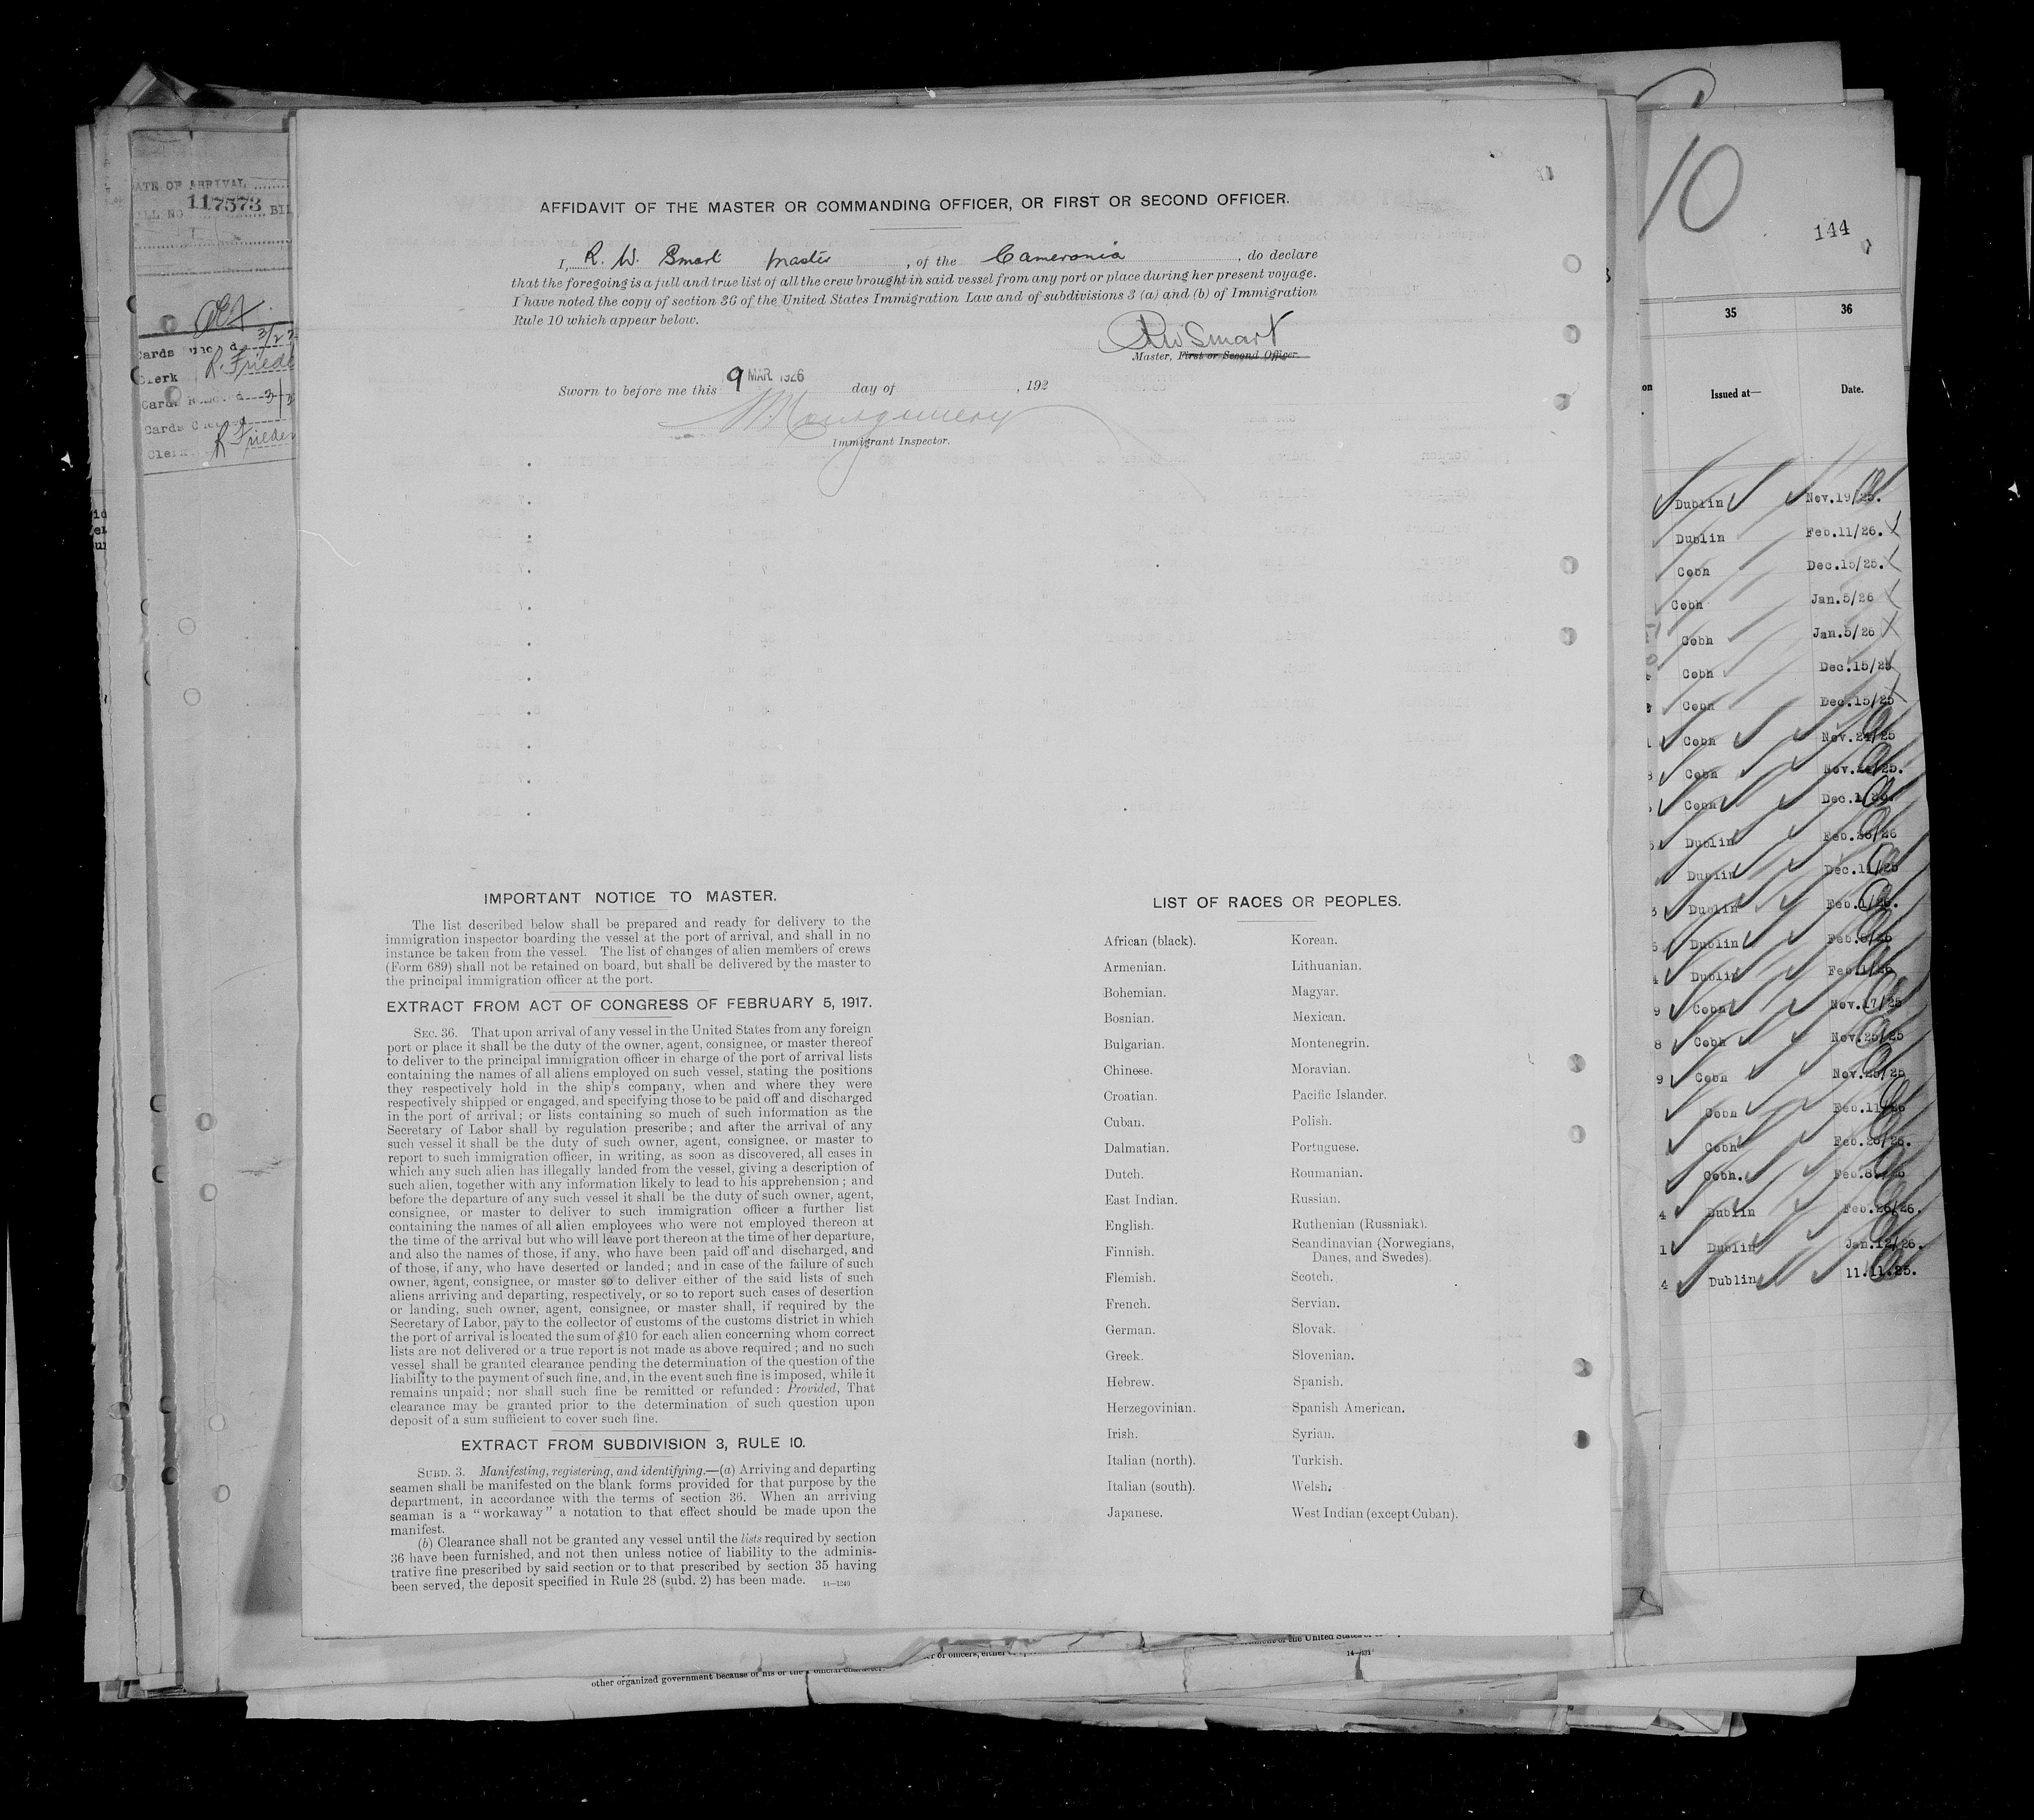 AFFIDAVIT OF THE MASTER OR COMMANDING OFFICER, OR FIRST OR SECOND OFFICER.
I, R. W. Smart Master, of the Cameronia, do declare
that the foregoing is a full and true list of all the crew brought in said vessel from any port or place during her present voyage.
I have noted the copy of section 36 of the United States Immigration Law and of subdivisions 3 (a) and (b) of Immigration
Rule 10 which appear below.
RW Smart
Master, First or Second Officer.
Sworn to before me this 9 MAR 1926 day of , 192
Montgomery
Immigrant Inspector.
IMPORTANT NOTICE TO MASTER.
The list described below shall be prepared and ready for delivery to the
immigration inspector boarding the vessel at the port of arrival, and shall in no
instance be taken from the vessel. The list of changes of alien members of crews
(Form 689) shall not be retained on board, but shall be delivered by the master to
the principal immigration officer at the port.
EXTRACT FROM ACT OF CONGRESS OF FEBRUARY 5, 1917.
SEC. 36. That upon arrival of any vessel in the United States from any foreign
port or place it shall be the duty of the owner, agent, consignee, or master thereof
to deliver to the principal immigration officer in charge of the port of arrival lists
containing the names of all aliens employed on such vessel, stating the positions
they respectively hold in the ship's company, when and where they were
respectively shipped or engaged, and specifying those to be paid off and discharged
in the port of arrival; or lists containing so much of such information as the
Secretary of Labor shall by regulation prescribe; and after the arrival of any
such vessel it shall be the duty of such owner, agent, consignee, or master to
report to such immigration officer, in writing, as soon as discovered, all cases in
which any such alien has illegally landed from the vessel, giving a description of
such alien, together with any information likely to lead to his apprehension; and
before the departure of any such vessel it shall be the duty of such owner, agent,
consignee, or master to deliver to such immigration officer a further list
containing the names of all alien employees who were not employed thereon at
the time of the arrival but who will leave port thereon at the time of her departure,
and also the names of those, if any, who have been paid off and discharged, and
of those, if any, who have deserted or landed; and in case of the failure of such
owner, agent, consignee, or master so to deliver either of the said lists of such
aliens arriving and departing, respectively, or so to report such cases of desertion
or landing, such owner, agent, consignee, or master shall, if required by the
Secretary of Labor, pay to the collector of customs of the customs district in which
the port of arrival is located the sum of $10 for each alien concerning whom correct
lists are not delivered or a true report is not made as above required; and no such
vessel shall be granted clearance pending the determination of the question of the
liability to the payment of such fine, and, in the event such fine is imposed, while it
remains unpaid; nor shall such fine be remitted or refunded: Provided, That
clearance may be granted prior to the determination of such question upon
deposit of a sum sufficient to cover such fine.
EXTRACT FROM SUBDIVISION 3, RULE 10.
SUBD. 3. Manifesting, registering, and identifying.—(a) Arriving and departing
seamen shall be manifested on the blank forms provided for that purpose by the
department, in accordance with the terms of section 36. When an arriving
seaman is a "workaway" a notation to that effect should be made upon the
manifest.
(b) Clearance shall not be granted any vessel until the lists required by section
36 have been furnished, and not then unless notice of liability to the adminis-
trative fine prescribed by said section or to that prescribed by section 35 having
been served, the deposit specified in Rule 28 (subd. 2) has been made. 14—1240
LIST OF RACES OR PEOPLES.
African (black).
Armenian.
Bohemian.
Bosnian.
Bulgarian.
Chinese.
Croatian.
Cuban.
Dalmatian.
Dutch.
East Indian.
English.
Finnish.
Flemish.
French.
German.
Greek.
Hebrew.
Herzegovinian.
Irish.
Italian (north).
Italian (south).
Japanese.
Korean.
Lithuanian.
Magyar.
Mexican.
Montenegrin.
Moravian.
Pacific Islander.
Polish.
Portuguese.
Roumanian.
Russian.
Ruthenian (Russniak).
Scandinavian (Norwegians,
Danes, and Swedes).
Scotch.
Servian.
Slovak.
Slovenian.
Spanish.
Spanish American.
Syrian.
Turkish.
Welsh.
West Indian (except Cuban).
ATE OF ARRIVAL
NO 117573
Clerk R. Frieden
Clerk R. Frieden
10
144
35 36
Issued at— Date.
Dublin Nov.19/25.
Dublin Feb.11/26.
Cobh Dec.15/25.
Cobh Jan.5/26
Cobh Jan.5/26
Cobh Dec.15/25
Cobh Dec.15/25
Cobh Nov.24/25
Cobh Nov.24/25.
Cobh Dec.1/25.
Dublin Feb.26/26
Dublin Dec.11/25
Dublin Feb.1/26.
Dublin Feb.8/26
Dublin Feb.1/26
Cobh Nov.17/25
Cobh Nov.25/25
Cobh Nov.25/25
Cobh Feb.11/26
Cobh Feb.26/26.
Cobh. Feb.8/26
Dublin Feb.26/26.
Dublin Jan.12/26.
Dublin 11.11.25.
other organized government because of his or
14—431